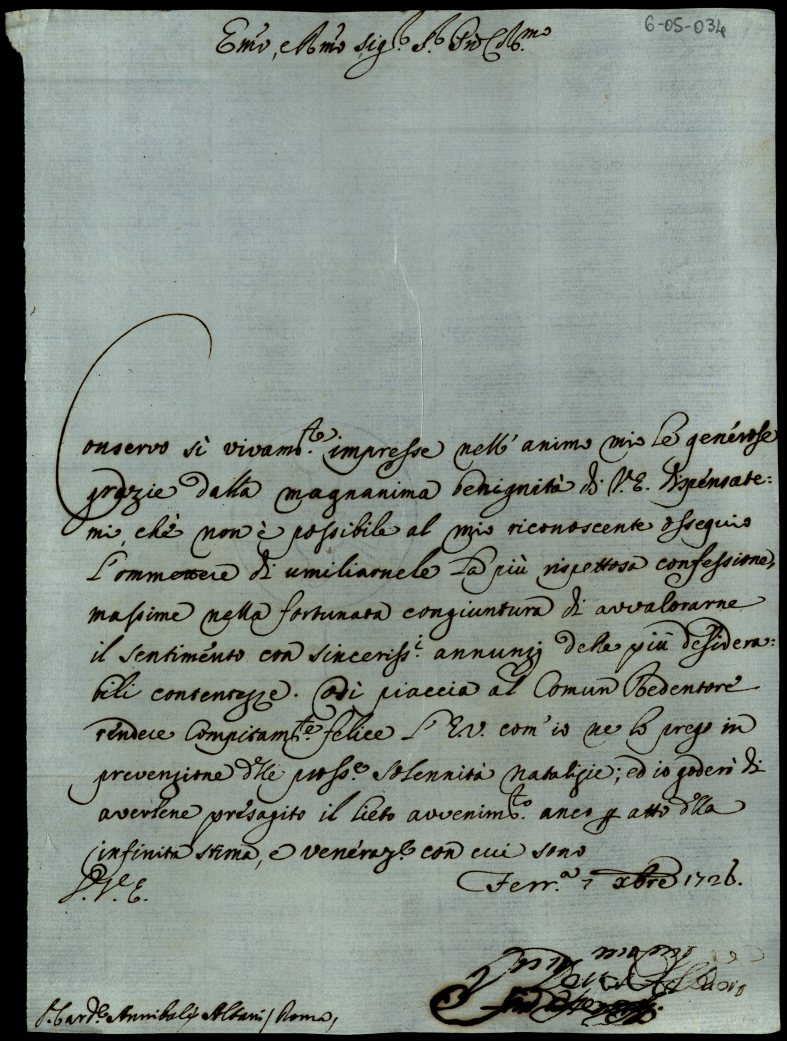 6-05-034
Em̃o, e Rm̃o Sig.r S.r Pro͠n Col.mo
Conservo sì vivam.te impresse nell' animo mio le generose
grazie dalla magnanima benignità di V.E. dispensate=
mi, che non è possibile al mio riconoscente ossequio
l'ommettere di umiliarnele la più rispettosa confessione,
massime nella fortunata congiuntura di avvalorarne
il sentimento con sinceriss.i annunzj delle più desidera=
bili contentezze. Così piaccia al Comun Redentore
rendere compitam.te felice l'E.V. com' io ne lo prego in
prevenzione d'lle pross.e Solennità natalizie; ed io goderò di
averlene presagito il lieto avvenim.to anco p atto d'lla
infinita stima, e veneraz.e con cui sono
D.V.E.
Ferr.a 7 xbre 1726.
S. Card.e Annibale Albani / Roma /